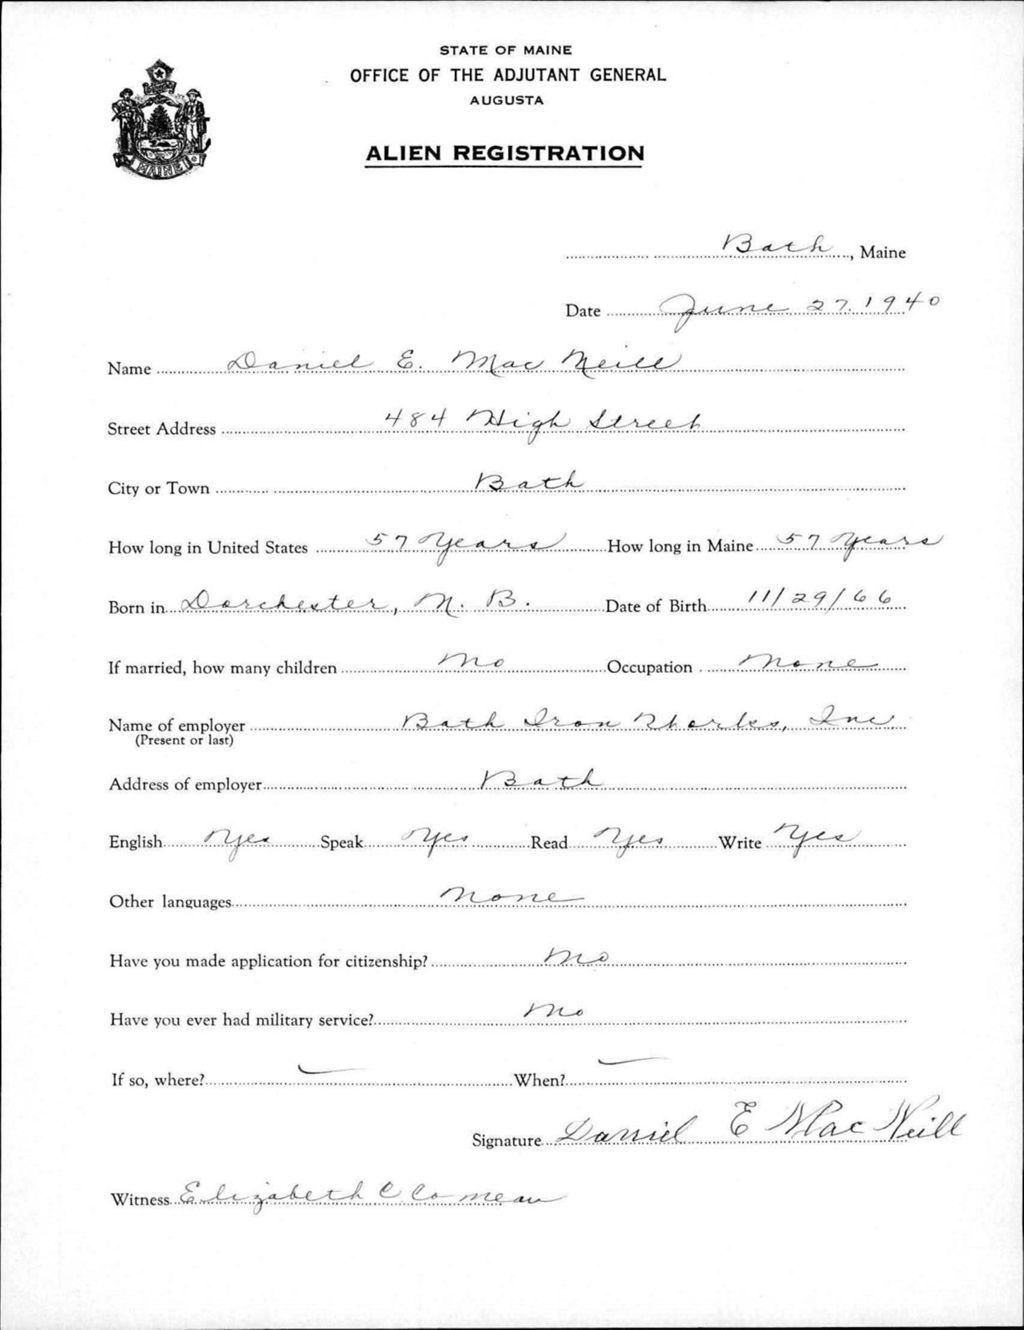 STATE OF MAINE
OFFICE OF THE ADJUTANT GENERAL
AUGUSTA
ALIEN REGISTRATION
MAINE
Bath, Maine
Date June 27, 1940
Name Daniel E. Mac Neill
Street Address 484 High Street
City or Town Bath
How long in United States 57 Years How long in Maine 57 years
Born in Dorchester, N. B. Date of Birth 11/29/66
If married, how many children No Occupation None
Name of employer Bath Iron Works, Inc
(Present or last)
Address of employer Bath
English Yes Speak Yes Read Yes Write Yes
Other languages None
Have you made application for citizenship? No
Have you ever had military service? No
If so, where? — When? —
Signature Daniel E MacNeill
Witness Elizabeth C Comeau